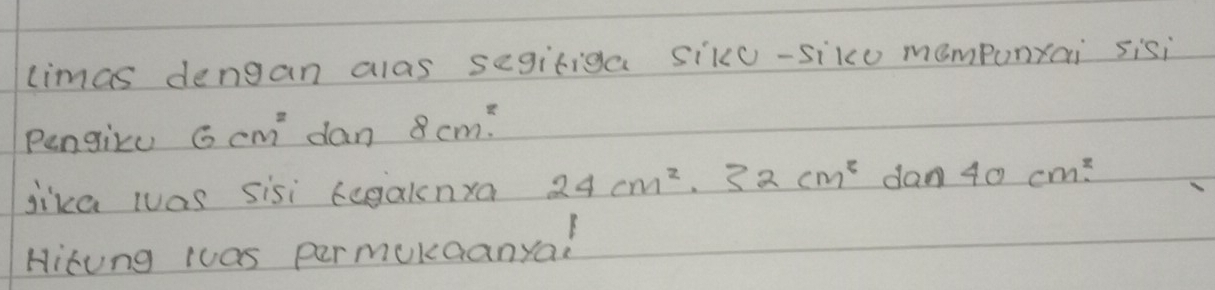 Limas dengan alas segitiga siku-siku mempunyai sisi
Pengiku 6 cm² dan 8 cm².
jika luas sisi tegaknya 24 cm², 32 cm² dan 40 cm².
Hitung luas permukaanya!